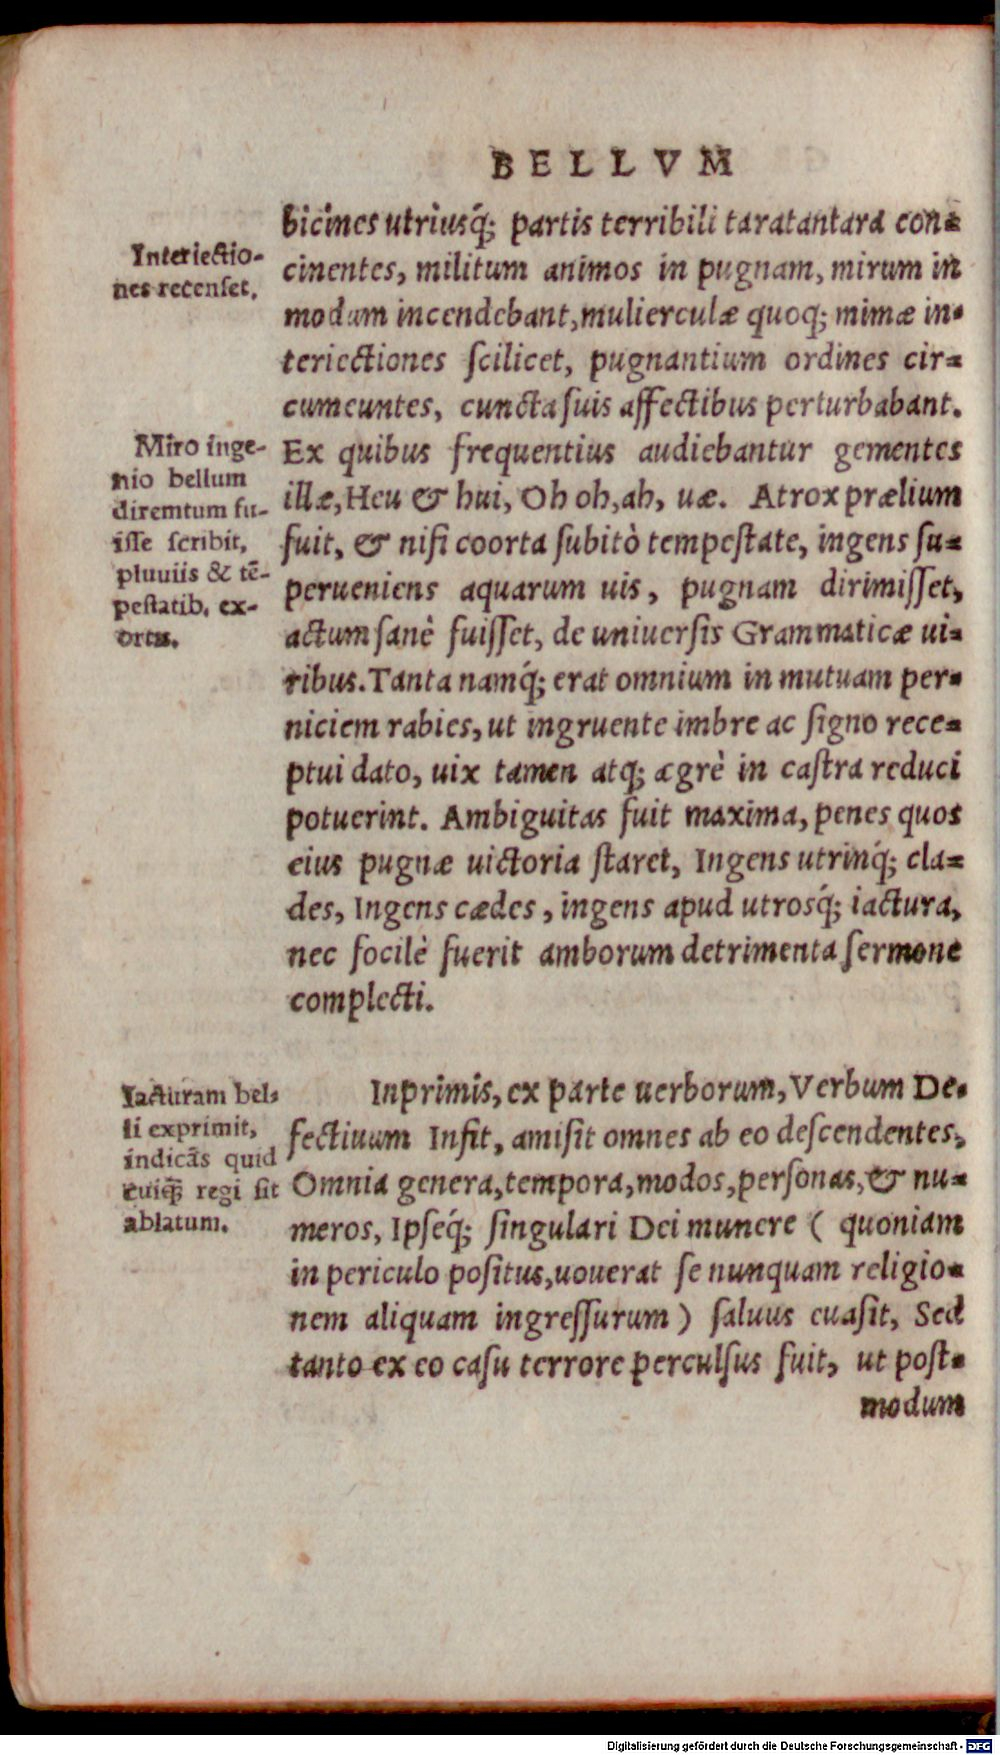 BELLVM
bicines utriusq́; partis terribili taratantara con=
cinentes, militum animos in pugnam, mirum in
modum incendebant, mulierculæ quoq; mimæ in=
teriectiones ſcilicet, pugnantium ordines cir=
cumeuntes, cuncta ſuis affectibus perturbabant.
Ex quibus frequentius audiebantur gementes
illæ, Heu & hui, Oh oh, ah, uæ. Atrox prælium
fuit, & niſi coorta ſubitò tempeſtate, ingens ſu=
perueniens aquarum uis, pugnam dirimiſſet,
actum ſanè fuiſſet, de uniuerſis Grammaticæ ui=
ribus. Tanta namq́; erat omnium in mutuam per=
niciem rabies, ut ingruente imbre ac ſigno rece=
ptui dato, uix tamen atq; ægrè in caſtra reduci
potuerint. Ambiguitas fuit maxima, penes quos
eius pugnæ uictoria ſtaret, Ingens utrinq́; cla=
des, Ingens cædes, ingens apud utrosq́; iactura,
nec focilè fuerit amborum detrimenta ſermone
complecti.
Inprimis, ex parte uerborum, Verbum De=
fectiuum Infit, amiſit omnes ab eo deſcendentes,
Omnia genera, tempora, modos, perſonas, & nu=
meros, Ipſeq́; ſingulari Dei munere ( quoniam
in periculo poſitus, uouerat ſe nunquam religio=
nem aliquam ingreſſurum ) ſaluus euaſit, Sed
tanto ex eo caſu terrore perculſus fuit, ut poſt=
modum
Interiectio-
nes recenſet.
Miro inge-
nio bellum
diremtum fu-
iſſe ſcribit,
pluuiis & tē-
peſtatib. ex-
ortis.
Iacturam bel-
li exprimit,
indicās quid
cuiq; regi ſit
ablatum.
Digitalisierung gefördert durch die Deutsche Forschungsgemeinschaft - DFG